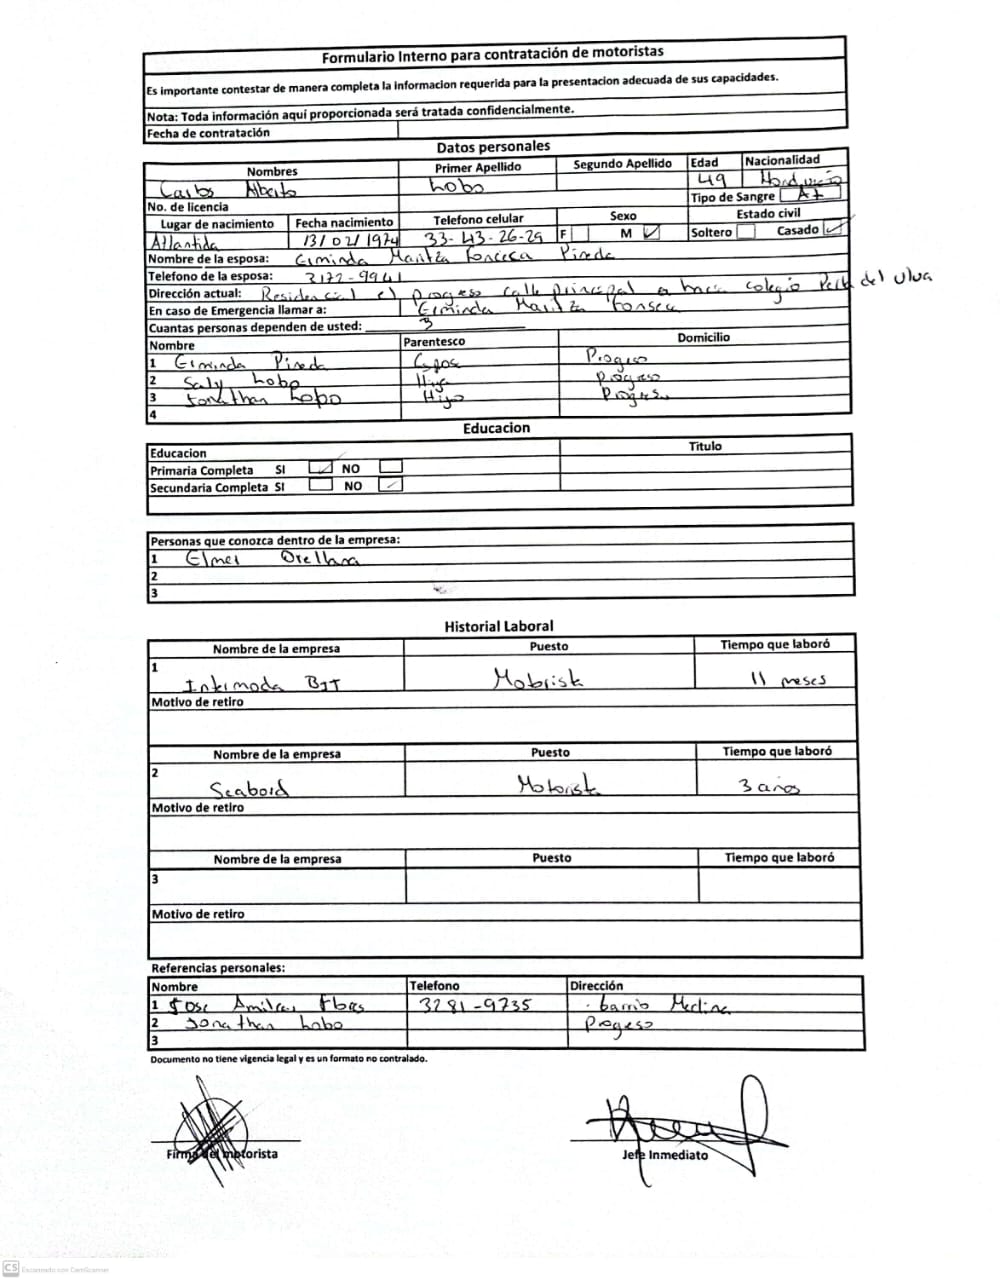 Formulario Interno para contratación de motoristas
Es importante contestar de manera completa la informacion requerida para la presentacion adecuada de sus capacidades.
Nota: Toda información aquí proporcionada será tratada confidencialmente.
Fecha de contratación
Datos personales
Nombres Primer Apellido Segundo Apellido Edad Nacionalidad
Carlos Alberto Lobo 49
No. de licencia Tipo de Sangre A+
Lugar de nacimiento Fecha nacimiento Telefono celular Sexo Estado civil
Atlantida 13/02/1974 33-43-26-29 F M Soltero Casado
Nombre de la esposa: Erminda Maritza Fonseca Pineda
Telefono de la esposa: 3172-9941
Dirección actual: Residencial el progreso calle principal a colegio Perla del Ulua
En caso de Emergencia llamar a: Erminda Maritza Fonseca
Cuantas personas dependen de usted: 3
Nombre Parentesco Domicilio
1 Erminda Pineda Espos Progreso
2 Saly Lobo Hija Progreso
3 Jonathan Lobo Hijo Progreso
4
Educacion
Educacion Titulo
Primaria Completa SI NO
Secundaria Completa SI NO
Personas que conozca dentro de la empresa:
1 Elmer Orellana
2
3
Historial Laboral
Nombre de la empresa Puesto Tiempo que laboró
1
Intimoda Motorista 11 meses
Motivo de retiro
Nombre de la empresa Puesto Tiempo que laboró
2
Seabord Motorista 3 años
Motivo de retiro
Nombre de la empresa Puesto Tiempo que laboró
3
Motivo de retiro
Referencias personales:
Nombre Telefono Dirección
1 Jose Amilcar Flores 3281-9735 barrio Medina
2 Jonathan Lobo Progeso
3
Documento no tiene vigencia legal y es un formato no contralado.
Firma del motorista Jefe Inmediato
CS Escaneado con CamScanner